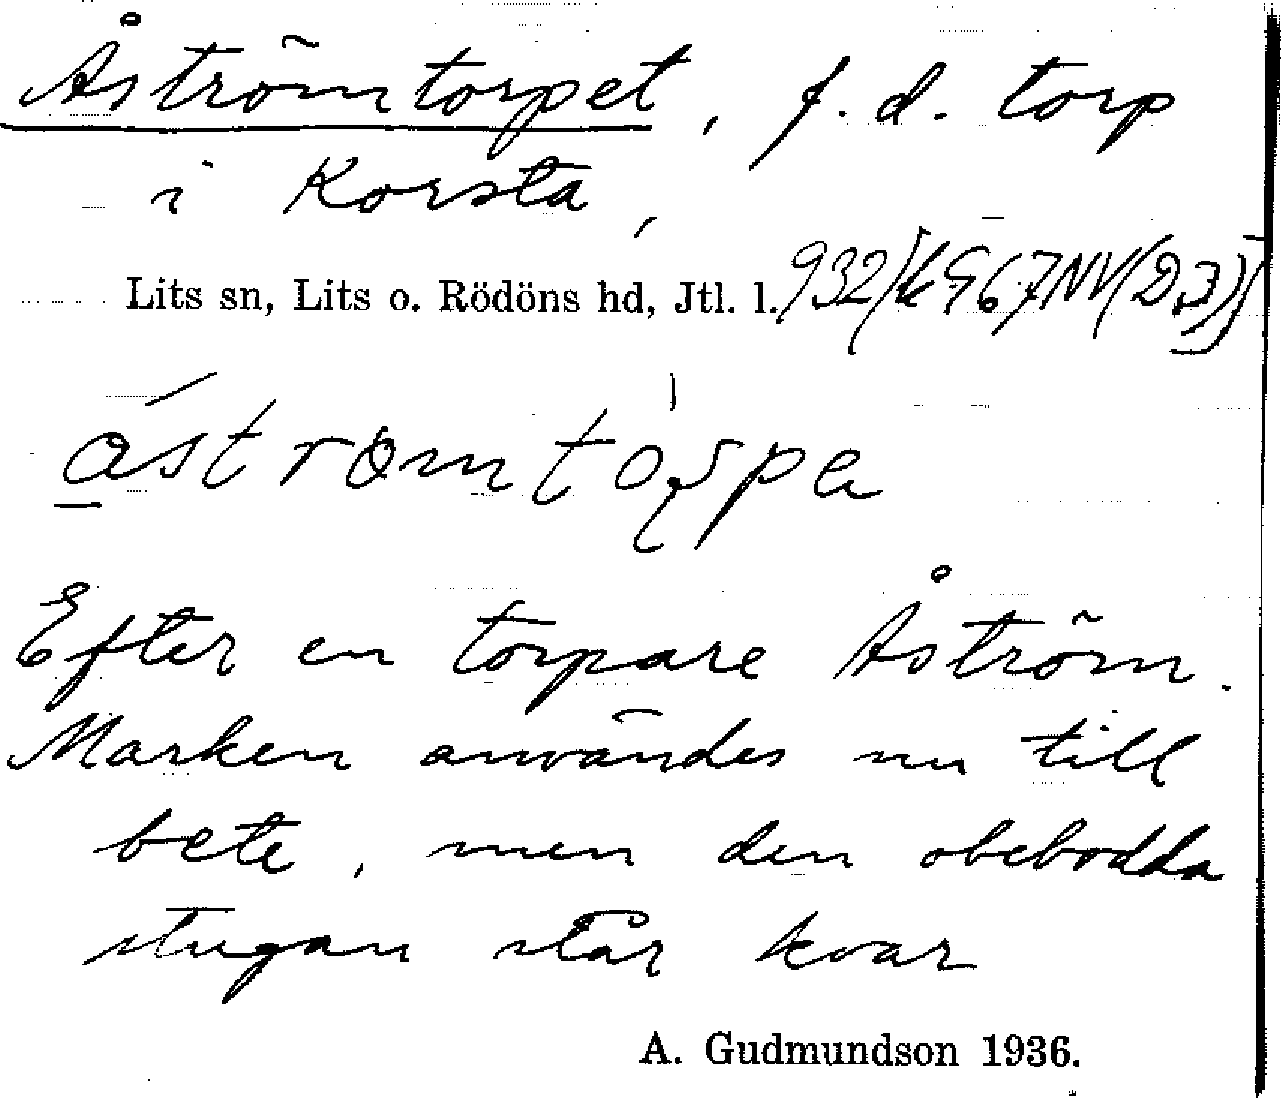 Åströmtorpet, f.d. torp
i Korsta,
Lits sn, Lits o. Rödöns hd, Jtl. l.
Efter en torpare Åström.
Marken användes nu till
bete, men den obebodda
stugan står kvar
A. Gudmundson 1936.